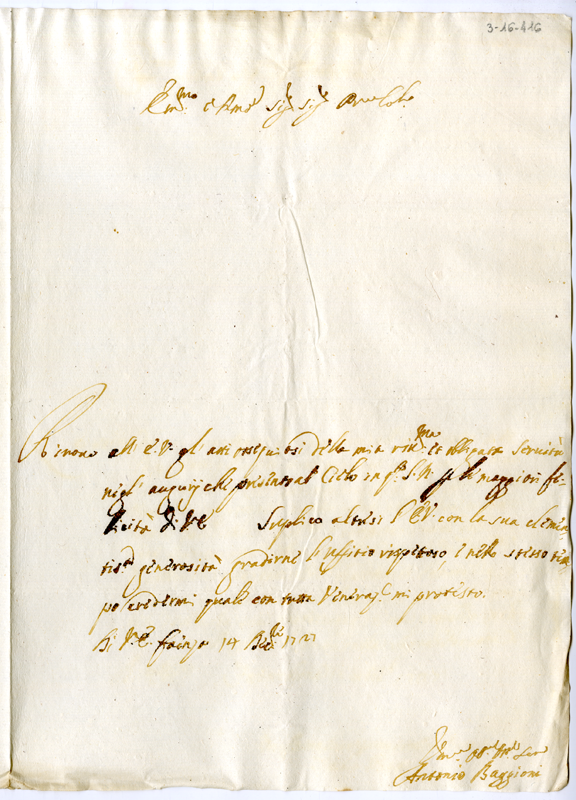 3-16-416
Ill.mo e Sig.r Sig.r Pron Col.mo
Rinovo all' E.V. gli atti ossequiosi della mia riv.ma et obligata servitù
negl' augurij che presento al Cielo in q.te S.N. p le maggiori fe-
licità di V.E. Suplico altresì l'E.V. con la sua clemen
tis.a generosità gradirne l'uffitio rispettoso, e nello stesso tem
po credermi quale con tutta veneraz.e mi protesto.
Di V.E. Faenza 14 Dec.re 1727
Antonio Baggioni